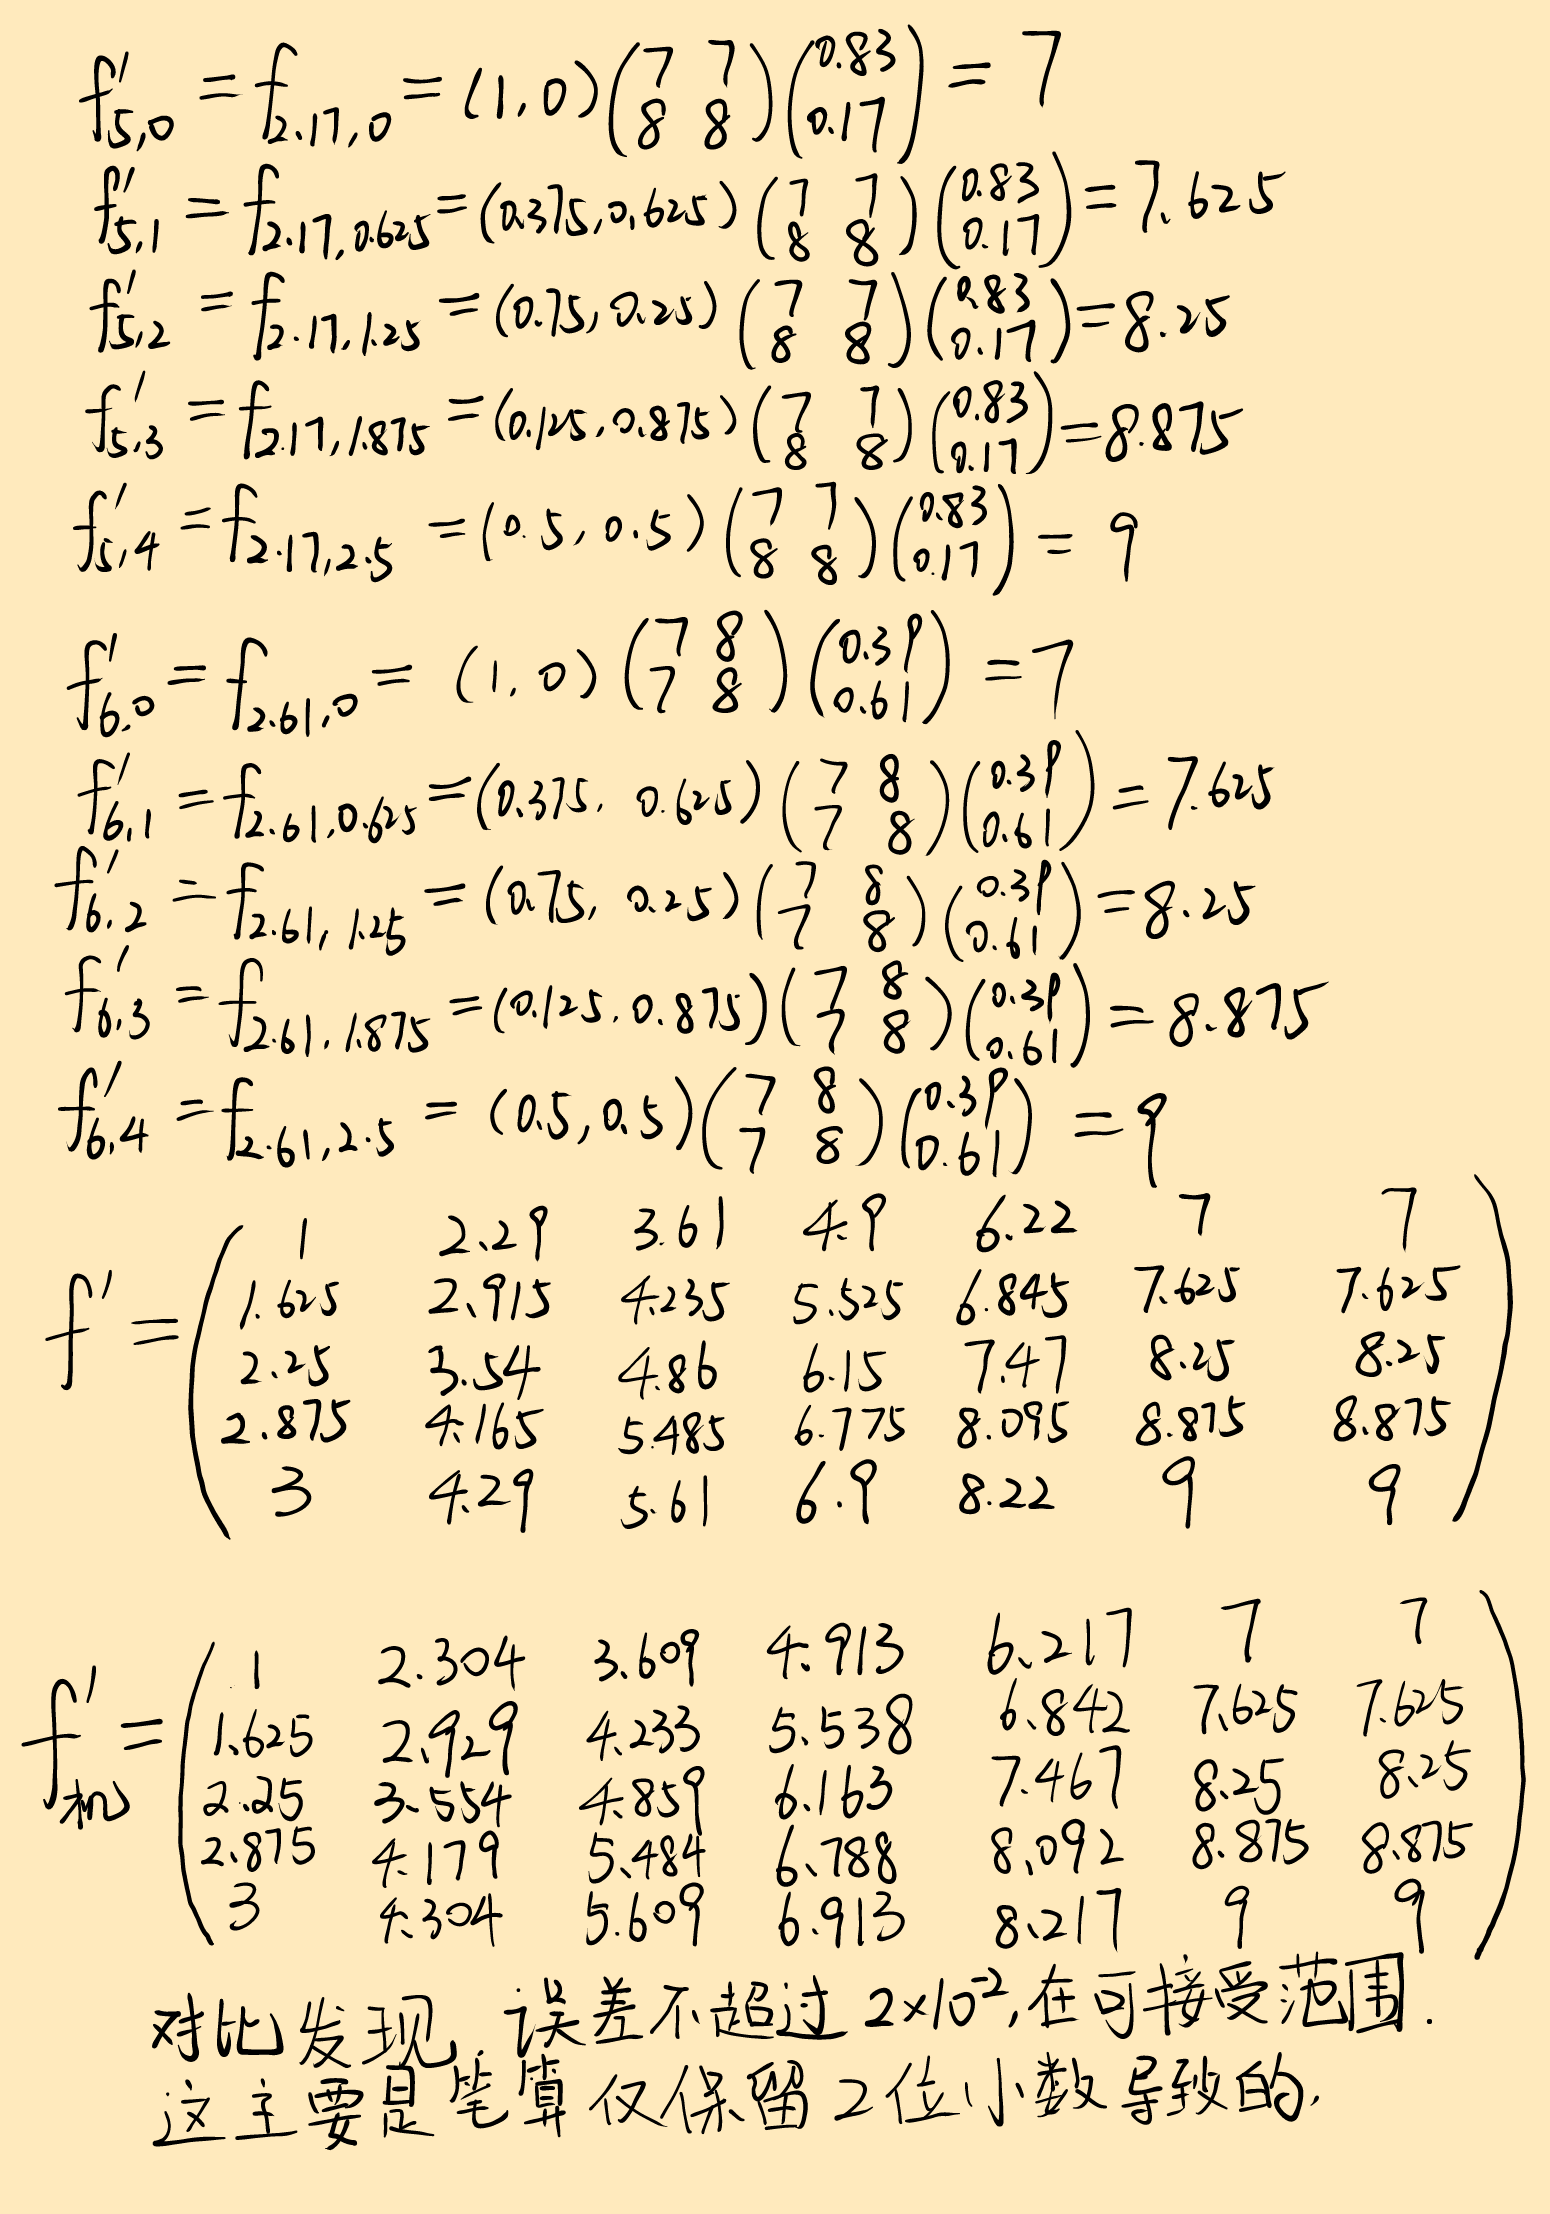 f'₅,₀ = f₂.₁₇,₀ = (1, 0) (7 7; 8 8) (0.83; 0.17) = 7
f'₅,₁ = f₂.₁₇,₀.₆₂₅ = (0.375, 0.625) (7 7; 8 8) (0.83; 0.17) = 7.625
f'₅,₂ = f₂.₁₇,₁.₂₅ = (0.75, 0.25) (7 7; 8 8) (0.83; 0.17) = 8.25
f'₅,₃ = f₂.₁₇,₁.₈₇₅ = (0.125, 0.875) (7 7; 8 8) (0.83; 0.17) = 8.875
f'₅,₄ = f₂.₁₇,₂.₅ = (0.5, 0.5) (7 7; 8 8) (0.83; 0.17) = 9
f'₆,₀ = f₂.₆₁,₀ = (1, 0) (7 8; 7 8) (0.39; 0.61) = 7
f'₆,₁ = f₂.₆₁,₀.₆₂₅ = (0.375, 0.625) (7 8; 7 8) (0.39; 0.61) = 7.625
f'₆,₂ = f₂.₆₁,₁.₂₅ = (0.75, 0.25) (7 8; 7 8) (0.39; 0.61) = 8.25
f'₆,₃ = f₂.₆₁,₁.₈₇₅ = (0.125, 0.875) (7 8; 7 8) (0.39; 0.61) = 8.875
f'₆,₄ = f₂.₆₁,₂.₅ = (0.5, 0.5) (7 8; 7 8) (0.39; 0.61) = 9
1 2.29 3.61 4.9 6.22 7 7
1.625 2.915 4.235 5.525 6.845 7.625 7.625
f' =
2.25 3.54 4.86 6.15 7.47 8.25 8.25
2.875 4.165 5.485 6.775 8.095 8.875 8.875
3 4.29 5.61 6.9 8.22 9 9
1 2.304 3.609 4.913 6.217 7 7
f'机 =
1.625 2.929 4.233 5.538 6.842 7.625 7.625
2.25 3.554 4.859 6.163 7.467 8.25 8.25
2.875 4.179 5.484 6.788 8.092 8.875 8.875
3 4.304 5.609 6.913 8.217 9 9
对比发现, 误差不超过 2×10⁻², 在可接受范围.
这主要是笔算仅保留2位小数导致的,